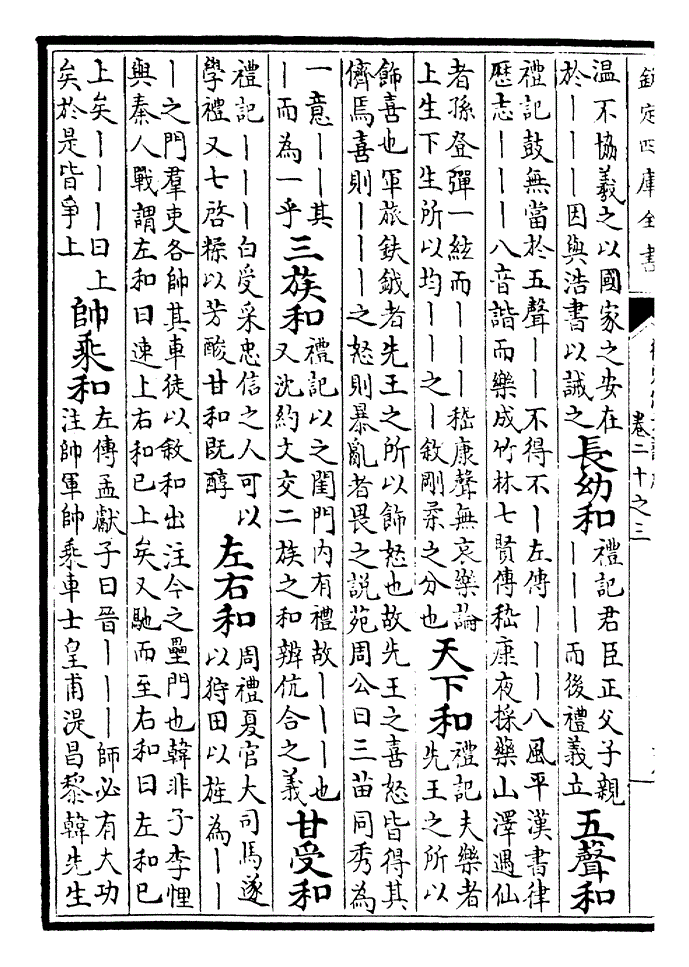 欽定四庫全書
卷二十之三
温不協羲之以國家之安在
於丨丨丨因與浩書以誡之
長幼和
禮記君臣正父子親
丨丨丨而後禮義立
五聲和
禮記鼓無當於五聲丨丨不得不丨左傳丨丨丨丨八風平漢書律
歷志丨丨丨八音諧而樂成竹林七賢傳嵇康夜採藥山澤遇仙
者孫登彈一絃而丨丨丨丨嵇康聲無哀樂論
上生下生所以均丨丨之丨敘剛柔之分也
天下和
禮記夫樂者
先王之所以
飾喜也軍旅鈇鉞者先王之所以飾怒也故先王之喜怒皆得其
儕焉喜則丨丨丨之怒則暴亂者畏之説苑周公曰三苗同秀為
一意丨丨其
丨而為一乎
三族和
禮記以之閨門内有禮故丨丨丨也
又沈約文交二族之和辨伉合之義
甘受和
禮記丨丨丨白受采忠信之人可以
學禮又七啓糅以芳酸甘和既醇
左右和
周禮夏官大司馬遂
以狩田以旌為丨丨
丨之門羣吏各帥其車徒以敘和出注今之壘門也韓非子李悝
與秦人戰謂左和曰速上右和已上矣又馳而至右和曰左和已
上矣丨丨丨曰上
矣於是皆爭上
帥乘和
左傳孟獻子曰晉丨丨丨師必有大功
注帥軍帥乘車士皇甫湜昌黎韓先生